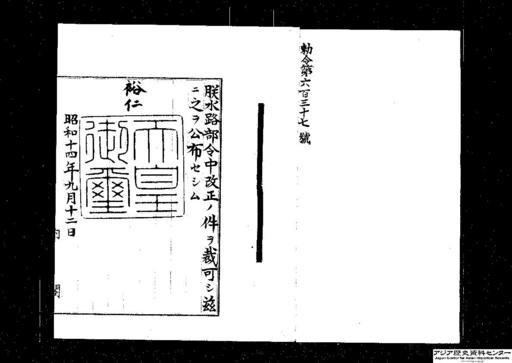 勅令第六百三十七號
朕水路部令中改正ノ件ヲ裁可シ茲
ニ之ヲ公布セシム
裕仁
天皇
御璽
昭和十四年九月十二日
内閣
アジア歴史資料センター
Japan Center for Asian Historical Records